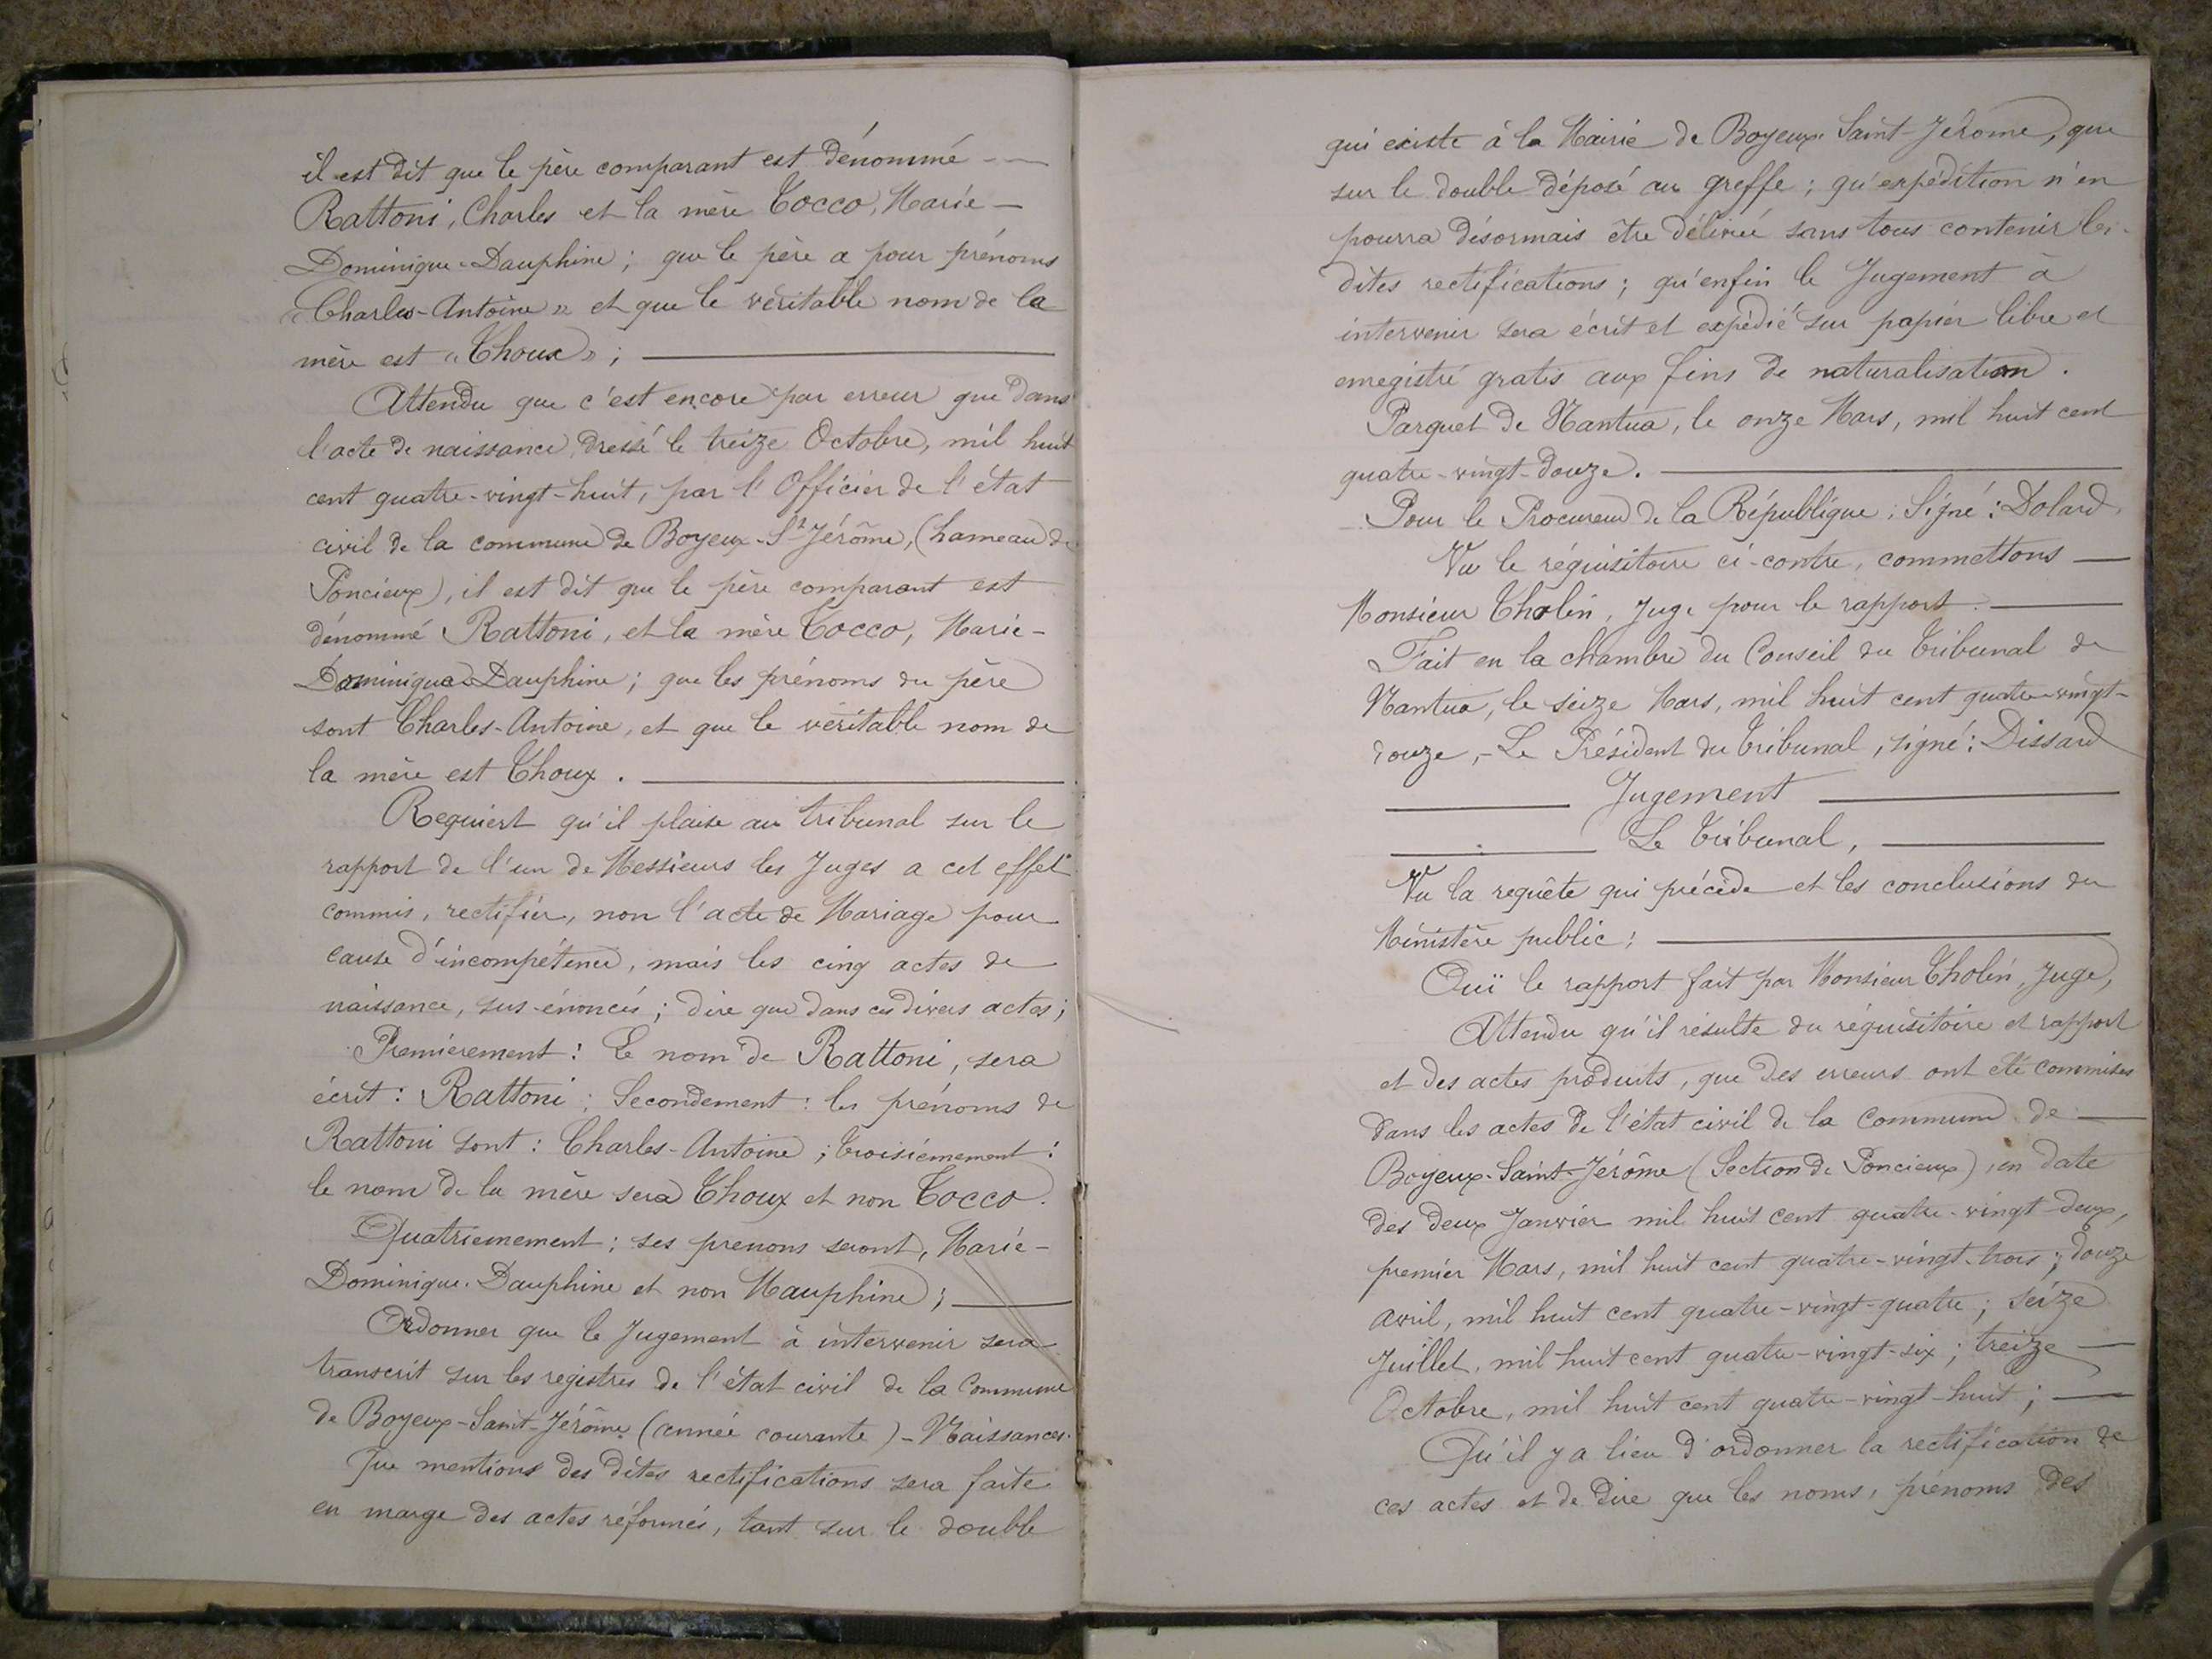 il est dit que le père comparant est dénommé
Rattoni, Charles et la mère Tocco, Marie-
Dominique-Dauphine ; que le père a pour prénoms
« Charles-Antoine » et que le véritable nom de la
mère est « Thoux » ;
Attendu que c'est encore par erreur que dans
l'acte de naissance, dressé le treize Octobre, mil huit
cent quatre-vingt-huit, par l'Officier de l'état
civil de la commune de Boyeux-St Jérôme, (hameau de
Poncieux), il est dit que le père comparant est
dénommé Rattoni, et la mère Tocco, Marie-
Dominique-Dauphine ; que les prénoms du père
sont Charles-Antoine, et que le véritable nom de
la mère est Thoux.
Requiert qu'il plaise au tribunal sur le
rapport de l'un de Messieurs les Juges a cet effet
commis, rectifier, non l'acte de Mariage pour
cause d'incompétence, mais les cinq actes de
naissance, sus-énoncés ; dire que dans ces divers actes ;
Premièrement : Le nom de Rattoni, sera
écrit : Rattoni ; Secondement : les prénoms de
Rattoni sont : Charles-Antoine ; troisièmement :
le nom de la mère sera Thoux et non Tocco.
Quatriemement : ses prenons seront, Marie-
Dominique-Dauphine et non Mauphine ;
Ordonner que le Jugement à intervenir sera
transcrit sur les registres de l'état civil de la Commune
de Boyeux-Saint-Jérôme (année courante) - Naissances.
Que mentions des dites rectifications sera faite
en marge des actes réformés, tant sur le double
qui existe à la Mairie de Boyeux-Saint-Jérome, que
sur le double déposé au greffe ; qu'expédition n'en
pourra désormais être délivrée sans tous contenir les-
dites rectifications ; qu'enfin le Jugement à
intervenir sera écrit et expédié sur papier libre et
enregistré gratis aux fins de naturalisation.
Parquet de Nantua, le onze Mars, mil huit cent
quatre-vingt-douze.
Pour le Procureur de la République ; Signé : Dolard
Vu le réquisitoire ci-contre, commettons
Monsieur Tholin, Juge pour le rapport.
Fait en la chambre du Conseil du tribunal de
Nantua, le seize Mars, mil huit cent quatre-vingt-
douze, - Le Président du tribunal, signé : Dissard
Jugement
Le Tribunal,
Vu la requête qui précède et les conclusions du
Ministère public ;
Ouï le rapport fait par Monsieur Tholin, Juge,
Attendu qu'il résulte du réquisitoire et rapport
et des actes produits, que des erreurs ont été commises
dans les actes de l'état civil de la Commune de
Boyeux-Saint-Jérôme (Section de Poncieux), en date
des deux Janvier mil huit cent quatre-vingt-deux,
premier Mars, mil huit cent quatre-vingt-trois ; douze
avril, mil huit cent quatre-vingt-quatre ; seize
Juillet, mil huit cent quatre-vingt-six ; treize
Octobre, mil huit cent quatre-vingt-huit ;
Qu'il y a lieu d'ordonner la rectification de
ces actes et de dire que les noms, prénoms des